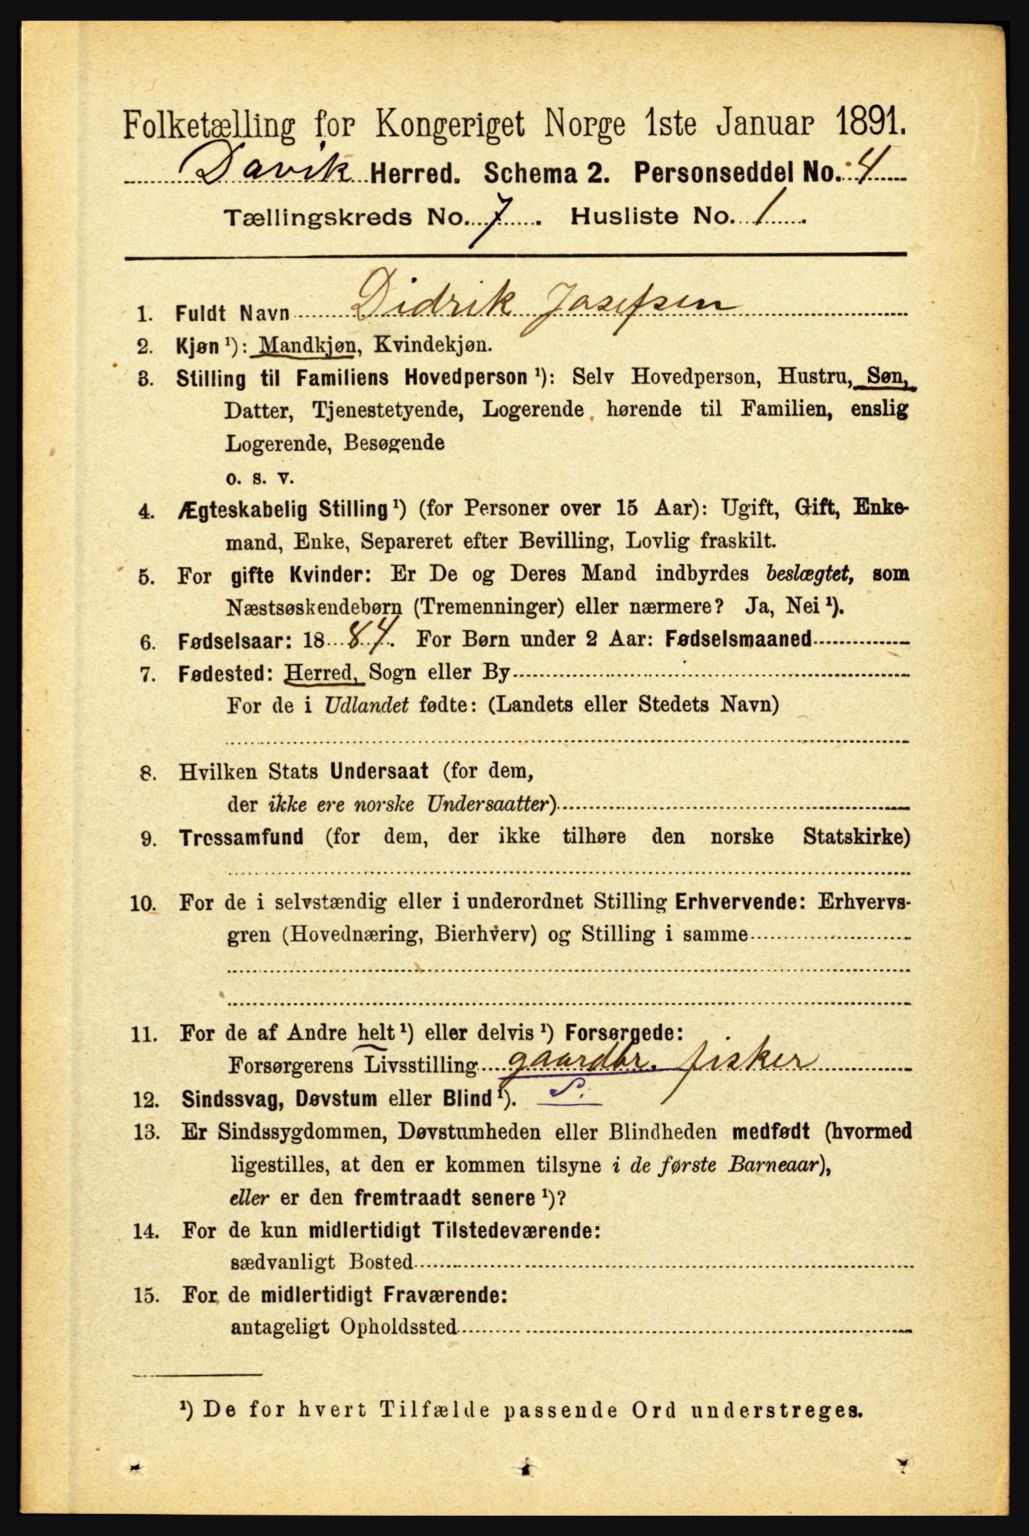 Folketælling for Kongeriget Norge 1ste Januar 1891.
Davik Herred. Schema 2. Personseddel No. 4
Tællingskreds No. 7. Husliste No. 1.
1. Fuldt Navn Didrik Josefsen
2. Kjøn ¹): Mandkjøn, Kvindekjøn.
3. Stilling til Familiens Hovedperson ¹): Selv Hovedperson, Hustru, Søn,
Datter, Tjenestetyende, Logerende hørende til Familien, enslig
Logerende, Besøgende
o. s. v.
4. Ægteskabelig Stilling ¹) (for Personer over 15 Aar): Ugift, Gift, Enke-
mand, Enke, Separeret efter Bevilling, Lovlig fraskilt.
5. For gifte Kvinder: Er De og Deres Mand indbyrdes beslægtet, som
Næstsøskendebørn (Tremenninger) eller nærmere? Ja, Nei ¹).
6. Fødselsaar: 1884. For Børn under 2 Aar: Fødselsmaaned
7. Fødested: Herred, Sogn eller By
For de i Udlandet fødte: (Landets eller Stedets Navn)
8. Hvilken Stats Undersaat (for dem,
der ikke ere norske Undersaatter)
9. Trossamfund (for dem, der ikke tilhøre den norske Statskirke)
10. For de i selvstændig eller i underordnet Stilling Erhvervende: Erhvervs-
gren (Hovednæring, Bierhverv) og Stilling i samme
11. For de af Andre helt ¹) eller delvis ¹) Forsørgede:
Forsørgerens Livsstilling gaardbr. fisker
12. Sindssvag, Døvstum eller Blind ¹). S.
13. Er Sindssygdommen, Døvstumheden eller Blindheden medfødt (hvormed
ligestilles, at den er kommen tilsyne i de første Barneaar),
eller er den fremtraadt senere ¹)?
14. For de kun midlertidigt Tilstedeværende:
sædvanligt Bosted
15. For de midlertidigt Fraværende:
antageligt Opholdssted
¹) De for hvert Tilfælde passende Ord understreges.